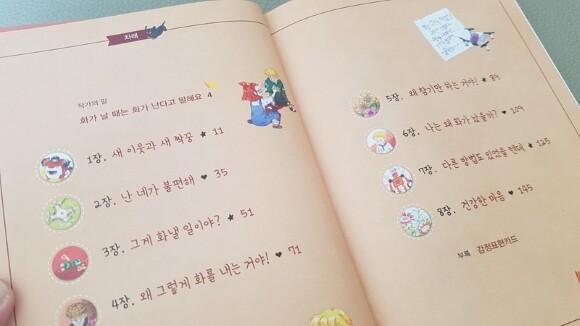 차례
작가의 말
화가 날 때는 화가 난다고 말해요 4
1장. 새 이웃과 새 짝꿍 ★ 11
2장. 난 네가 불편해 ♥ 35
3장. 그게 화낼 일이야? ★ 51
4장. 왜 그렇게 화를 내는 거야! ♥ 71
5장. 왜 참기만 하는 거야! ★ 89
6장. 나는 왜 화가 났을까? ♥ 109
7장. 다른 방법도 있었을 텐데 ★ 125
8장. 건강한 마음 ♥ 145
부록 감정표현카드